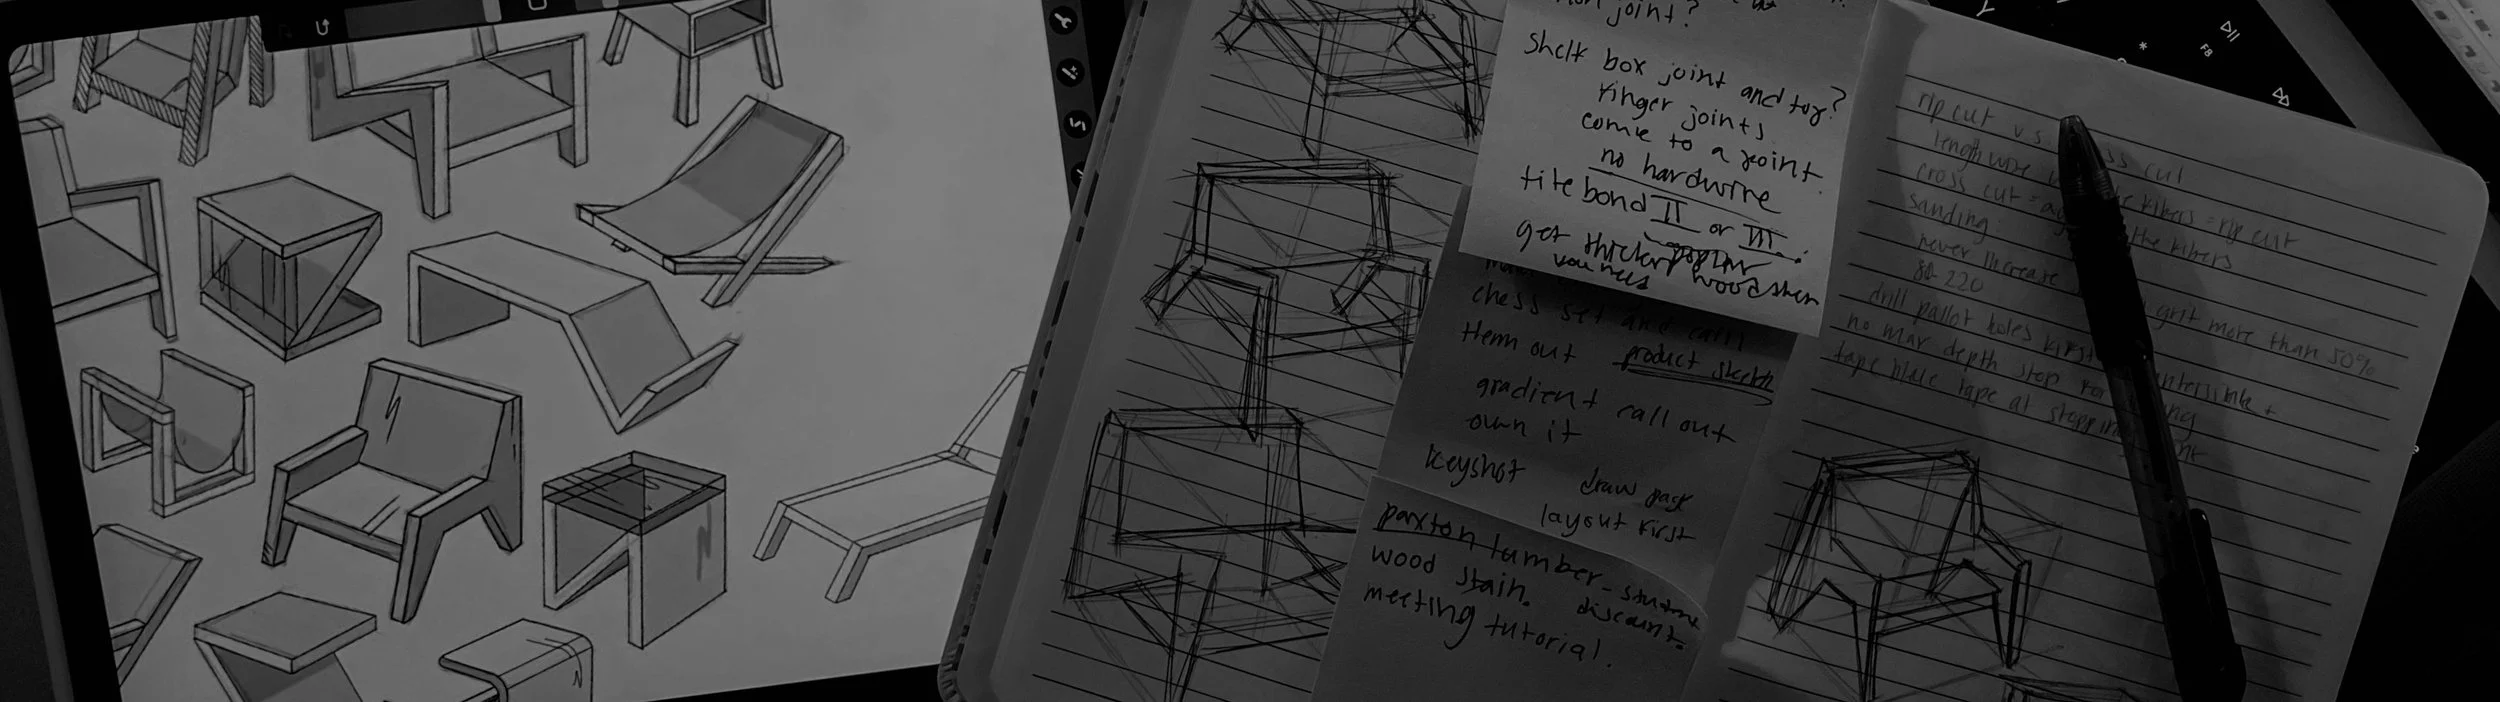 joint?
shelf box joint and toy?
finger joints
come to a point.
no hardwire
titebond II or III.
get thicker
chess set and call
them out product sketch
gradient call out
own it
keyshot draw page
layout first
paxton lumber - student
wood stain. discount.
meeting tutorial.
rip cut vs. cut
lengthwise fibers = rip cut
cross cut = the fibers
sanding
never increase grit more than 50%
80-220
drill pallot holes first
no mar depth stop for
tape blue tape at stopping
F8